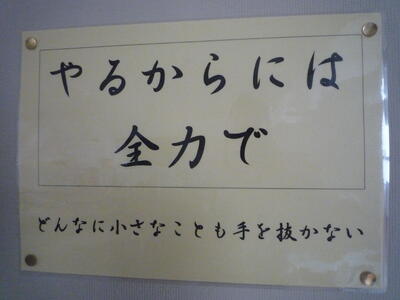 やるからには
全力で
どんなに小さなことも手を抜かない